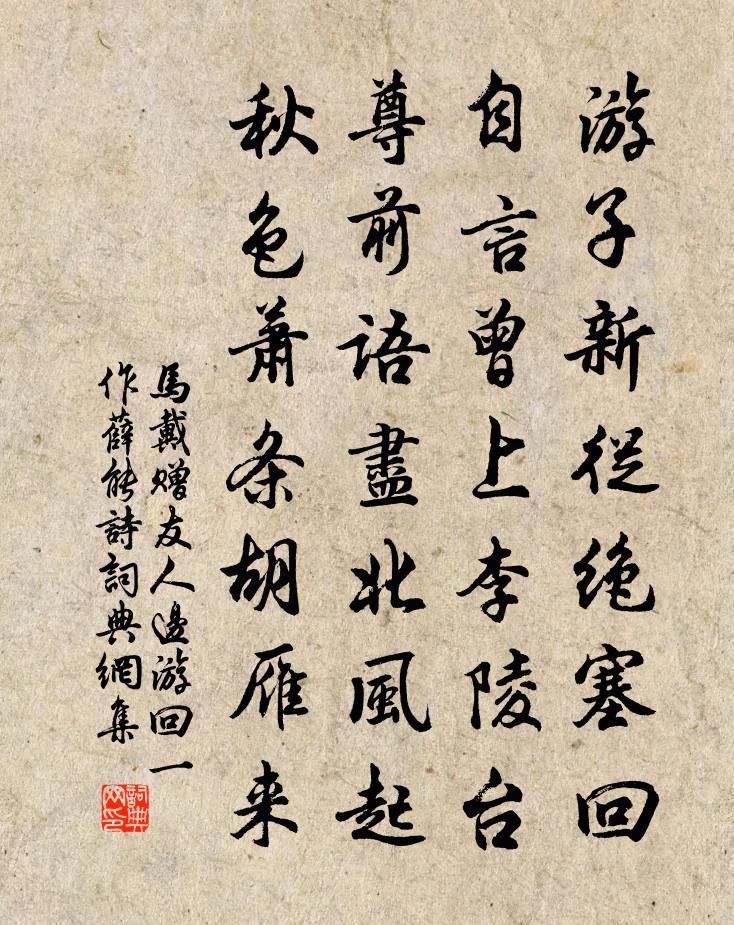 游子新從绝塞回
自言曾上李陵台
尊前语盡北風起
秋色萧条胡雁来
馬戴赠友人邊游回一
作薛能詩詞典網集
詞典
网印